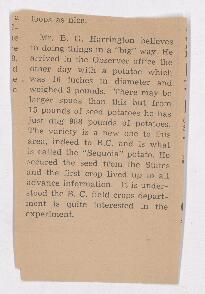 loops as nice.
Mr. B. G. Harrington believes
in doing things in a "big" way. He
arrived in the Observer office the
other day with a potato which
was 16 inches in diameter and
weighed 3 pounds. There may be
larger spuds than this but from
15 pounds of seed potatoes he has
just dug 808 pounds of potatoes.
The variety is a new one to this
area, indeed to B.C. and is what
is called the "Sequoia" potato. He
secured the seed from the States
and the first crop lived up to all
advance information. It is under-
stood the B. C. field crops depart-
ment is quite interested in the
experiment.